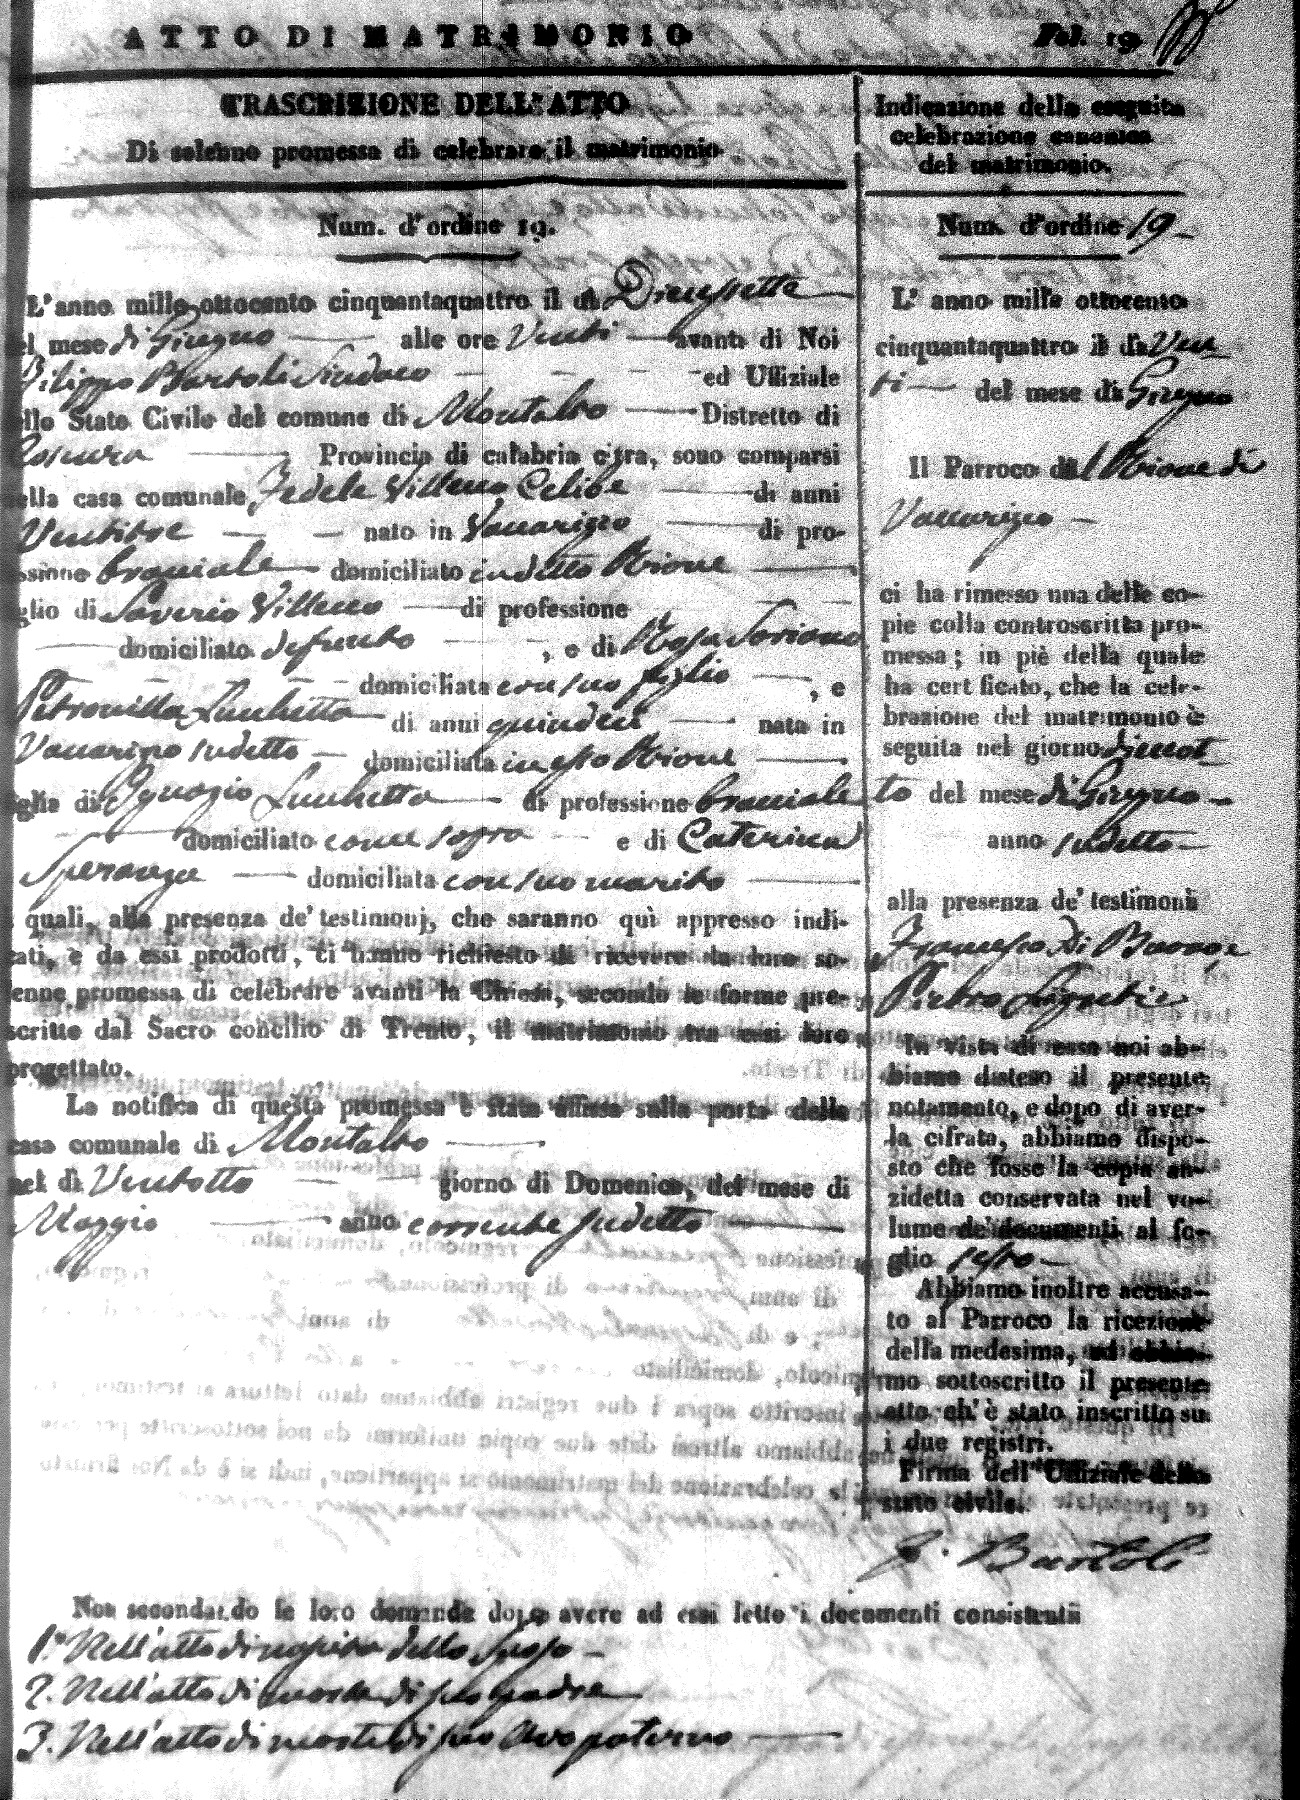 ATTO DI MATRIMONIO
Fol. 19
TRASCRIZIONE DELL'ATTO
Di solenne promessa di celebrare il matrimonio
Num. d'ordine 19.
L'anno mille ottocento cinquantaquattro il dì Diecissette
el mese di Giugno alle ore Venti avanti di Noi
Filippo Bartoli Sindaco ed Uffiziale
ello Stato Civile del comune di Montalto Distretto di
Provincia di calabria citra, sono comparsi
nella casa comunale Fedele Villecco Celibe di anni
Ventitre nato in Vaccarizzo di pro-
ssione bracciale domiciliato in detto Rione
glio di Saverio Villecco di professione
domiciliato defunto , e di Rosa Soriano
domiciliata con suo figlio , e
Petronilla Lucchetta di anni quindici nata in
Vaccarizzo sudetto domiciliata in esso Rione
iglia di Ignazio Lucchetta di professione bracciale
domiciliato come sopra e di Caterina
Speranza domiciliata con suo marito
i quali, alla presenza de' testimonj, che saranno quì appresso indi-
cati, e da essi prodotti, ci hanno richiesto di ricevere la loro so-
lenne promessa di celebrare avanti la Chiesa, secondo le forme pre-
scritte dal Sacro concilio di Trento, il matrimonio tra essi loro
progettato.
La notifica di questa promessa è stata affissa sulla porta della
casa comunale di Montalto
nel dì Ventotto giorno di Domenica, del mese di
Maggio anno corrente sudetto
Indicazione della eseguita
celebrazione canonica
del matrimonio.
Num. d'ordine 19
L' anno mille ottocento
cinquantaquattro il dì Ven
ti del mese di Giugno
Il Parroco del Rione di
Vaccarizzo
ci ha rimesso una delle co-
pie colla controscritta pro-
messa; in piè della quale
ha certificato, che la cele-
brazione del matrimonio è
seguita nel giorno dieciot
to del mese di Giugno
anno sudetto
alla presenza de' testimonii
Francesco Di e
Pietro
In vista di essa noi ab-
biamo disteso il presente
notamento, e dopo di aver-
la cifrata, abbiamo dispo-
sto che fosse la copia an-
zidetta conservata nel vo-
lume de' documenti al fo-
glio sesto
Abbiamo inoltre accusa-
to al Parroco la ricezione
della medesima, ed abbia-
mo sottoscritto il presente
atto ch' è stato inscritto su
i due registri.
Firma dell' Uffiziale dello
stato civile.
F. Bartoli
Noi secondando le loro domande dopo avere ad essi letto i documenti consistenti
1.° Nell'atto di nascita dello Sposo
2. Nell'atto di morte di suo padre
3. Nell'atto di morte di suo Avo paterno